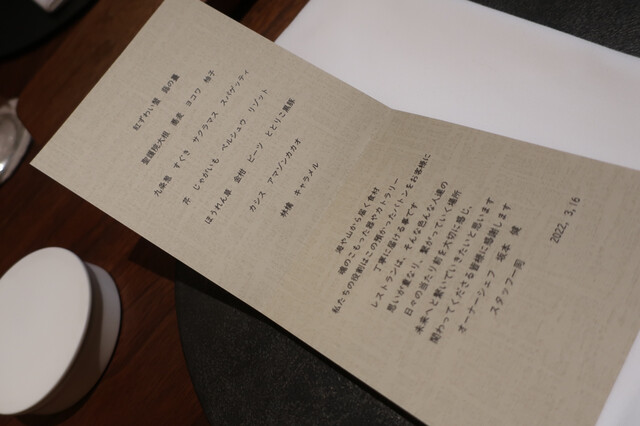 紅ずわい蟹 島の藻
聖護院大根 蕎麦 ヨコワ 柚子
九条葱 すぐき サクラマス スパゲッティ
芹 じゃがいも ペルシュウ リゾット
ほうれん草 金柑 ビーツ ととりこ豚
カシス アマゾンカカオ
林檎 キャラメル
海や山から届く食材
魂のこもった器やカトラリー
私たちの役割はこの預かったバトンをお客様に
丁寧に届ける事です
レストランは、そんな色んな人達の
思いが重なり、繋がっていく場所
日々の当たり前を大切に感じ、
未来へと繋いでいきたいと思います
関わってくださる皆様に感謝します
オーナーシェフ 坂本 健
スタッフ一同
2022. 3.16